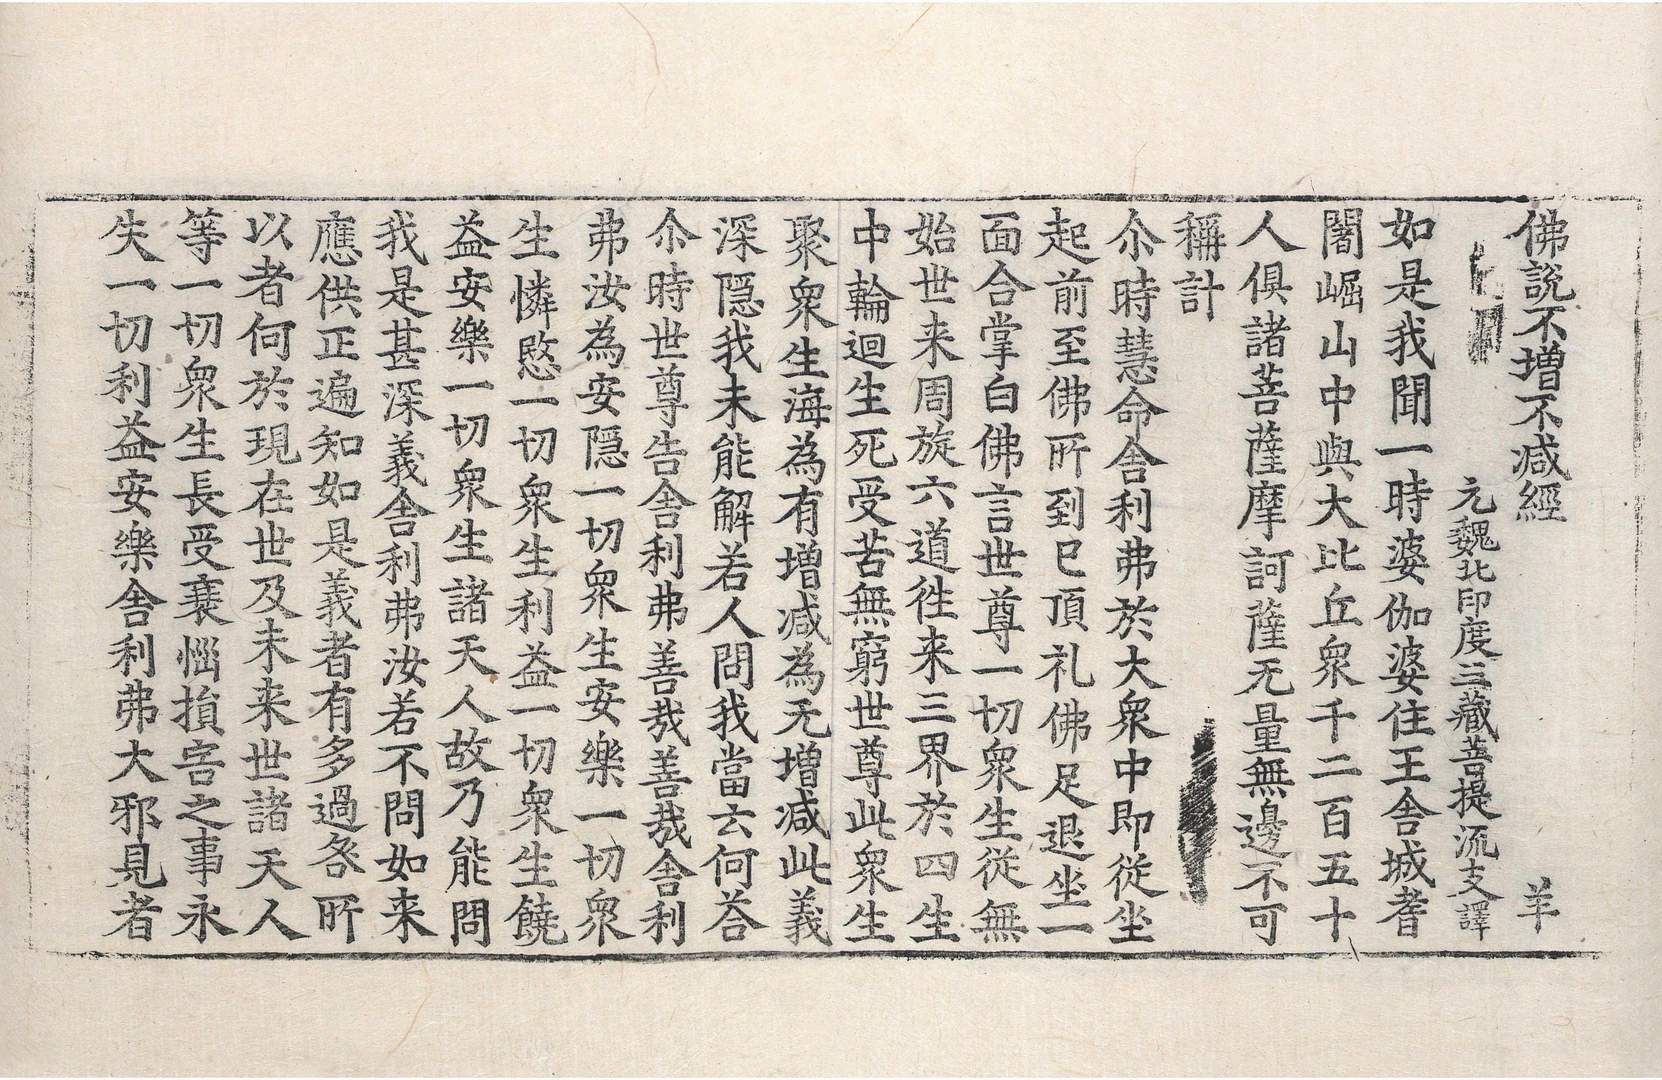 佛說不增不減經 羊
元魏北印度三藏菩提流支譯
如是我聞一時婆伽婆住王舍城耆
闍崛山中與大比丘眾千二百五十
人俱諸菩薩摩訶薩无量無邊不可
稱計
尒時慧命舍利弗於大眾中即從坐
起前至佛所到已頂礼佛足退坐一
面合掌白佛言世尊一切眾生從無
始世来周旋六道往来三界於四生
中輪迴生死受苦無窮世尊此眾生
聚眾生海為有增減為无增減此義
深隱我未能解若人問我當云何荅
尒時世尊告舍利弗善哉善哉舍利
弗汝為安隱一切眾生安樂一切眾
生憐愍一切眾生利益一切眾生饒
益安樂一切眾生諸天人故乃能問
我是甚深義舍利弗汝若不問如来
應供正遍知如是義者有多過咎所
以者何於現在世及未来世諸天人
等一切眾生長受衰惱損害之事永
失一切利益安樂舍利弗大邪見者